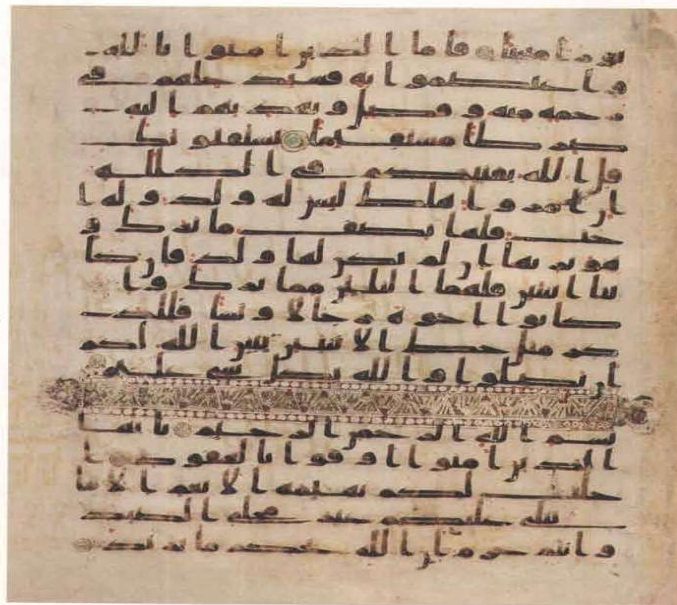 نورا مبينا فاما الذين امنوا بالله
واعتصموا به فسيدخلهم في
رحمه منه وفضل ويهديهم اليه
صرطا مستقيما يستفتونك
قل الله يفتيكم في الكلله
ان امروا هلك ليس له ولد وله ا
خت فلها نصف ما ترك و
هو يرثها ان لم يكن لها ولد فان كا
نتا اثنتين فلهما الثلثن مما ترك وان
كانوا اخوة رجالا ونسا فللذ
كر مثل حظ الانثيين يبين الله لكم
ان تضلوا والله بكل شي عليم
بسم الله الرحمن الرحيم يايها
الذين امنوا اوفوا بالعقود ا
حلت لكم بهيمه الانعم الا ما
يتلى عليكم غير محلي الصيد
وانتم حرم ان الله يحكم ما يريد